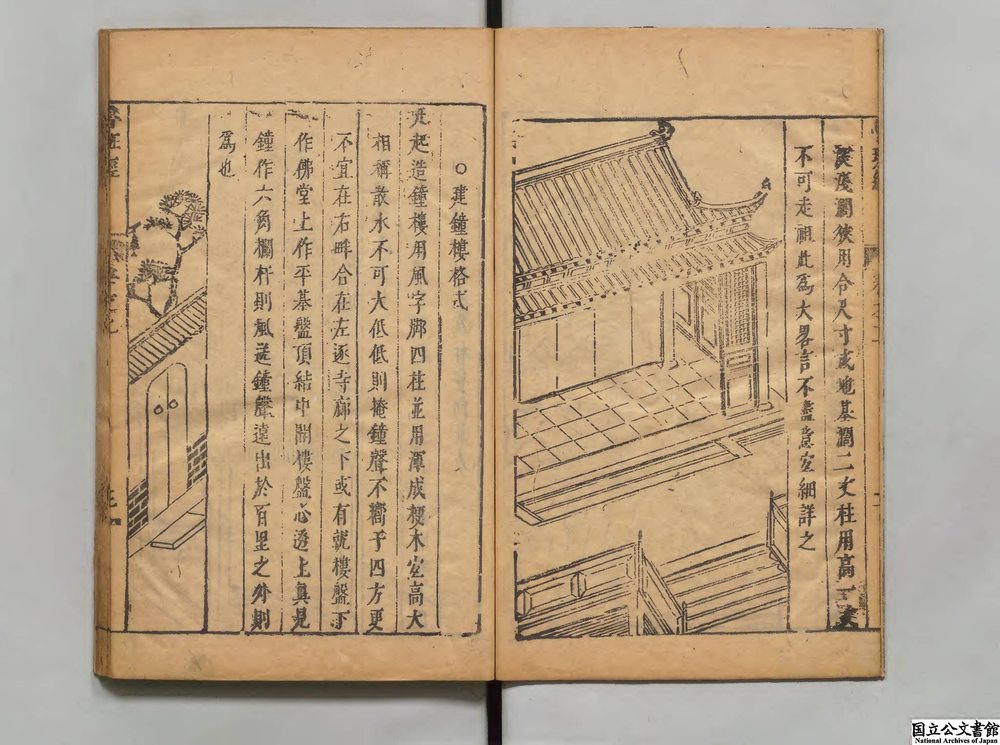 濶狹用合尺寸或地基濶二丈柱用高一丈
不可走祖此為大畧言不盡意宜細詳之
○建鐘樓格式
凡起造鐘樓用風字脚四柱並用渾成梗木宜高大
相稱散水不可大低低則掩鐘聲不嚮于四方更
不宜在右畔合在左逐寺廊之下或有就樓盤下
作佛堂上作平基盤頂結中開樓盤心透上真見
鐘作六角欄杆則風送鐘聲遠出於百里之外則
為也
魯班經
国立公文書館
National Archives of Japan